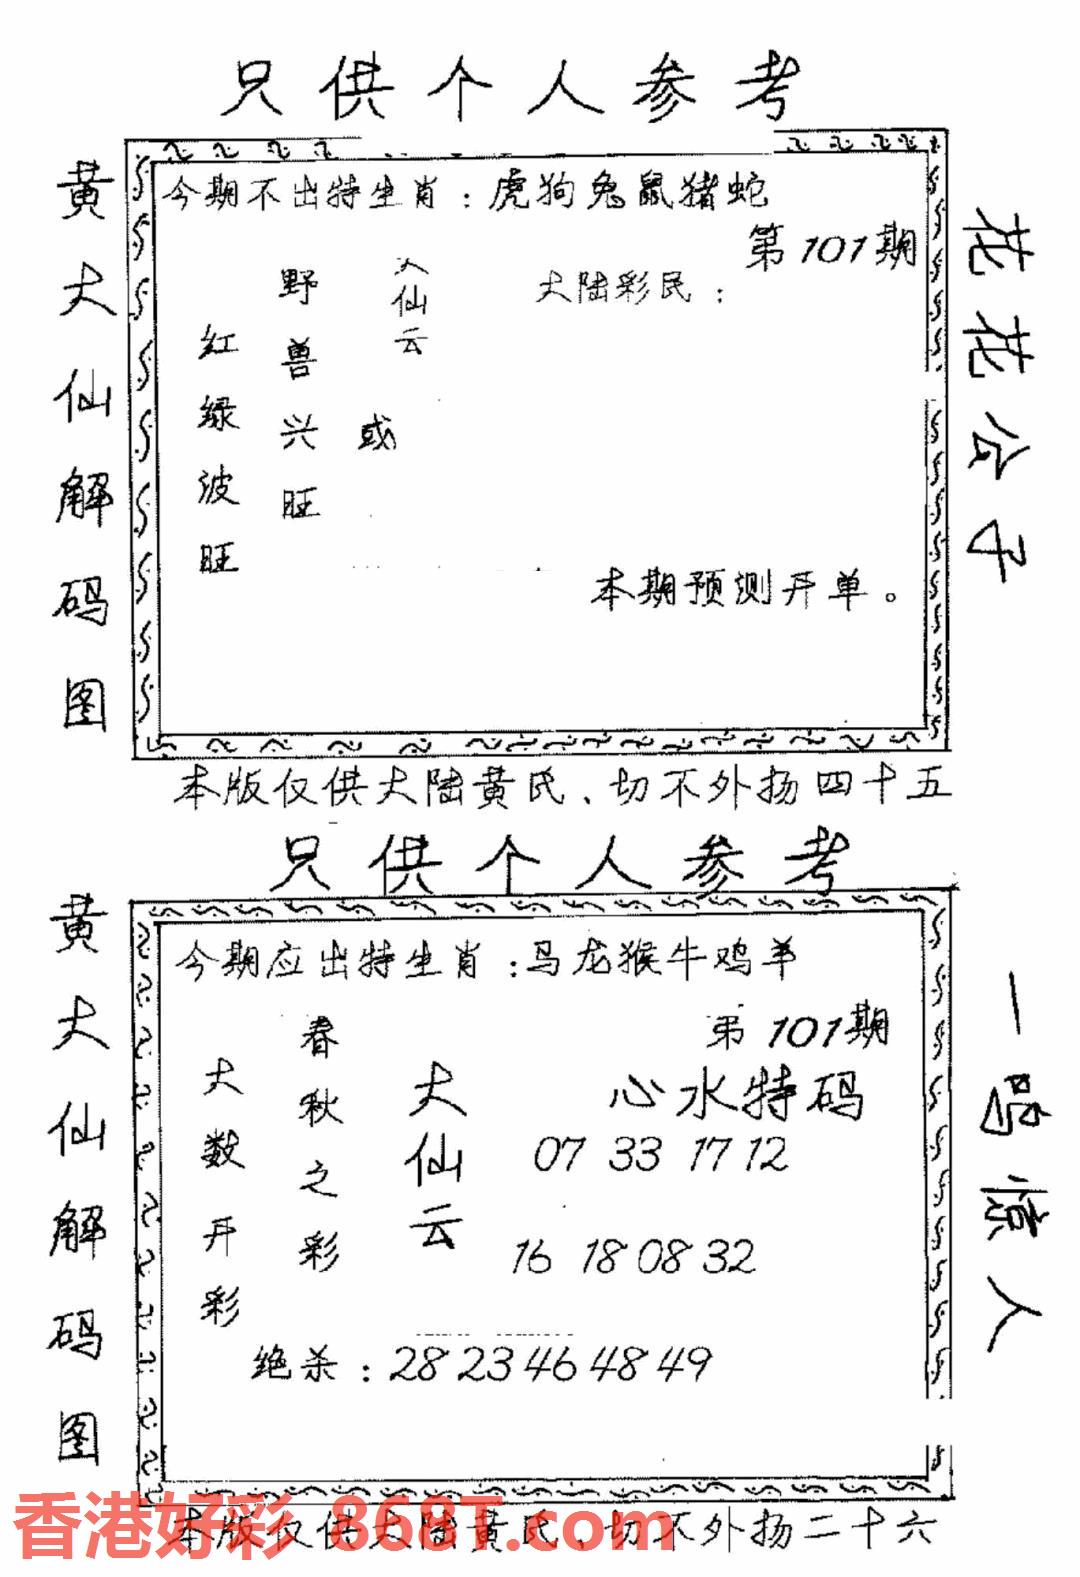 只供个人参考
黄大仙解码图
今期不出特生肖：虎狗兔鼠猪蛇
第101期
大陆彩民：
大仙云
野兽兴旺
或
红绿波旺
本期预测开单。
花花公子
本版仅供大陆黄氏、切不外扬四十五
只供个人参考
黄大仙解码图
今期应出特生肖：马龙猴牛鸡羊
第101期
心水特码
07 33 17 12
16 18 08 32
大仙云
春秋之彩
大数开彩
绝杀：28 23 46 48 49
一鸣惊人
本版仅供大陆黄氏、切不外扬二十六
香港好彩 868T.com